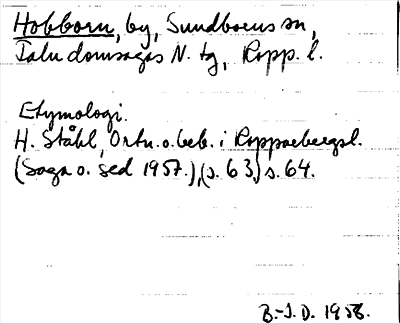 Hobborn, by, Sundborns sn,
Falu domsagas N. tg, Kopp. l.
Etymologi.
H. Ståhl, Ortn. o. beb. i Kopparbergsl.
(Saga o. sed 1957.), (s. 63) s. 64.
B.-I.D. 1958.